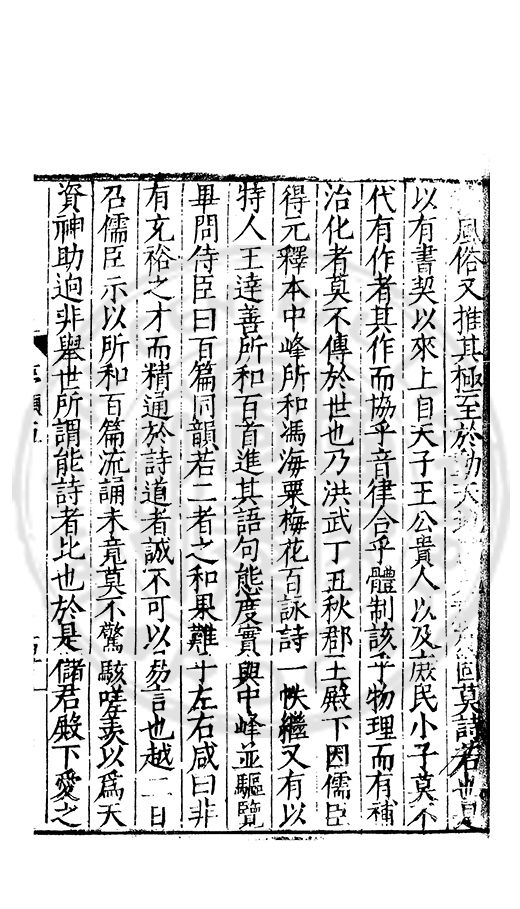 風俗又推其極至於動天地固莫詩若也是
以有書契以來上自天子王公貴人以及庶民小子莫不
代有作者其作而協乎音律合乎體制該乎物理而有補
治化者莫不傳於世也乃洪武丁丑秋郡王殿下因儒臣
得元釋本中峰所和馮海粟梅花百詠詩一帙繼又有以
特人王逹善所和百首進其語句態度實與中峰並驅覽
畢問侍臣曰百篇同韻若二者之和果難乎左右咸曰非
有充裕之才而精通於詩道者誠不可以易言也越二日
召儒臣示以所和百篇流誦未竟莫不驚駭嗟羡以爲天
資神助迥非舉世所謂能詩者比也於是儲君殿下愛之